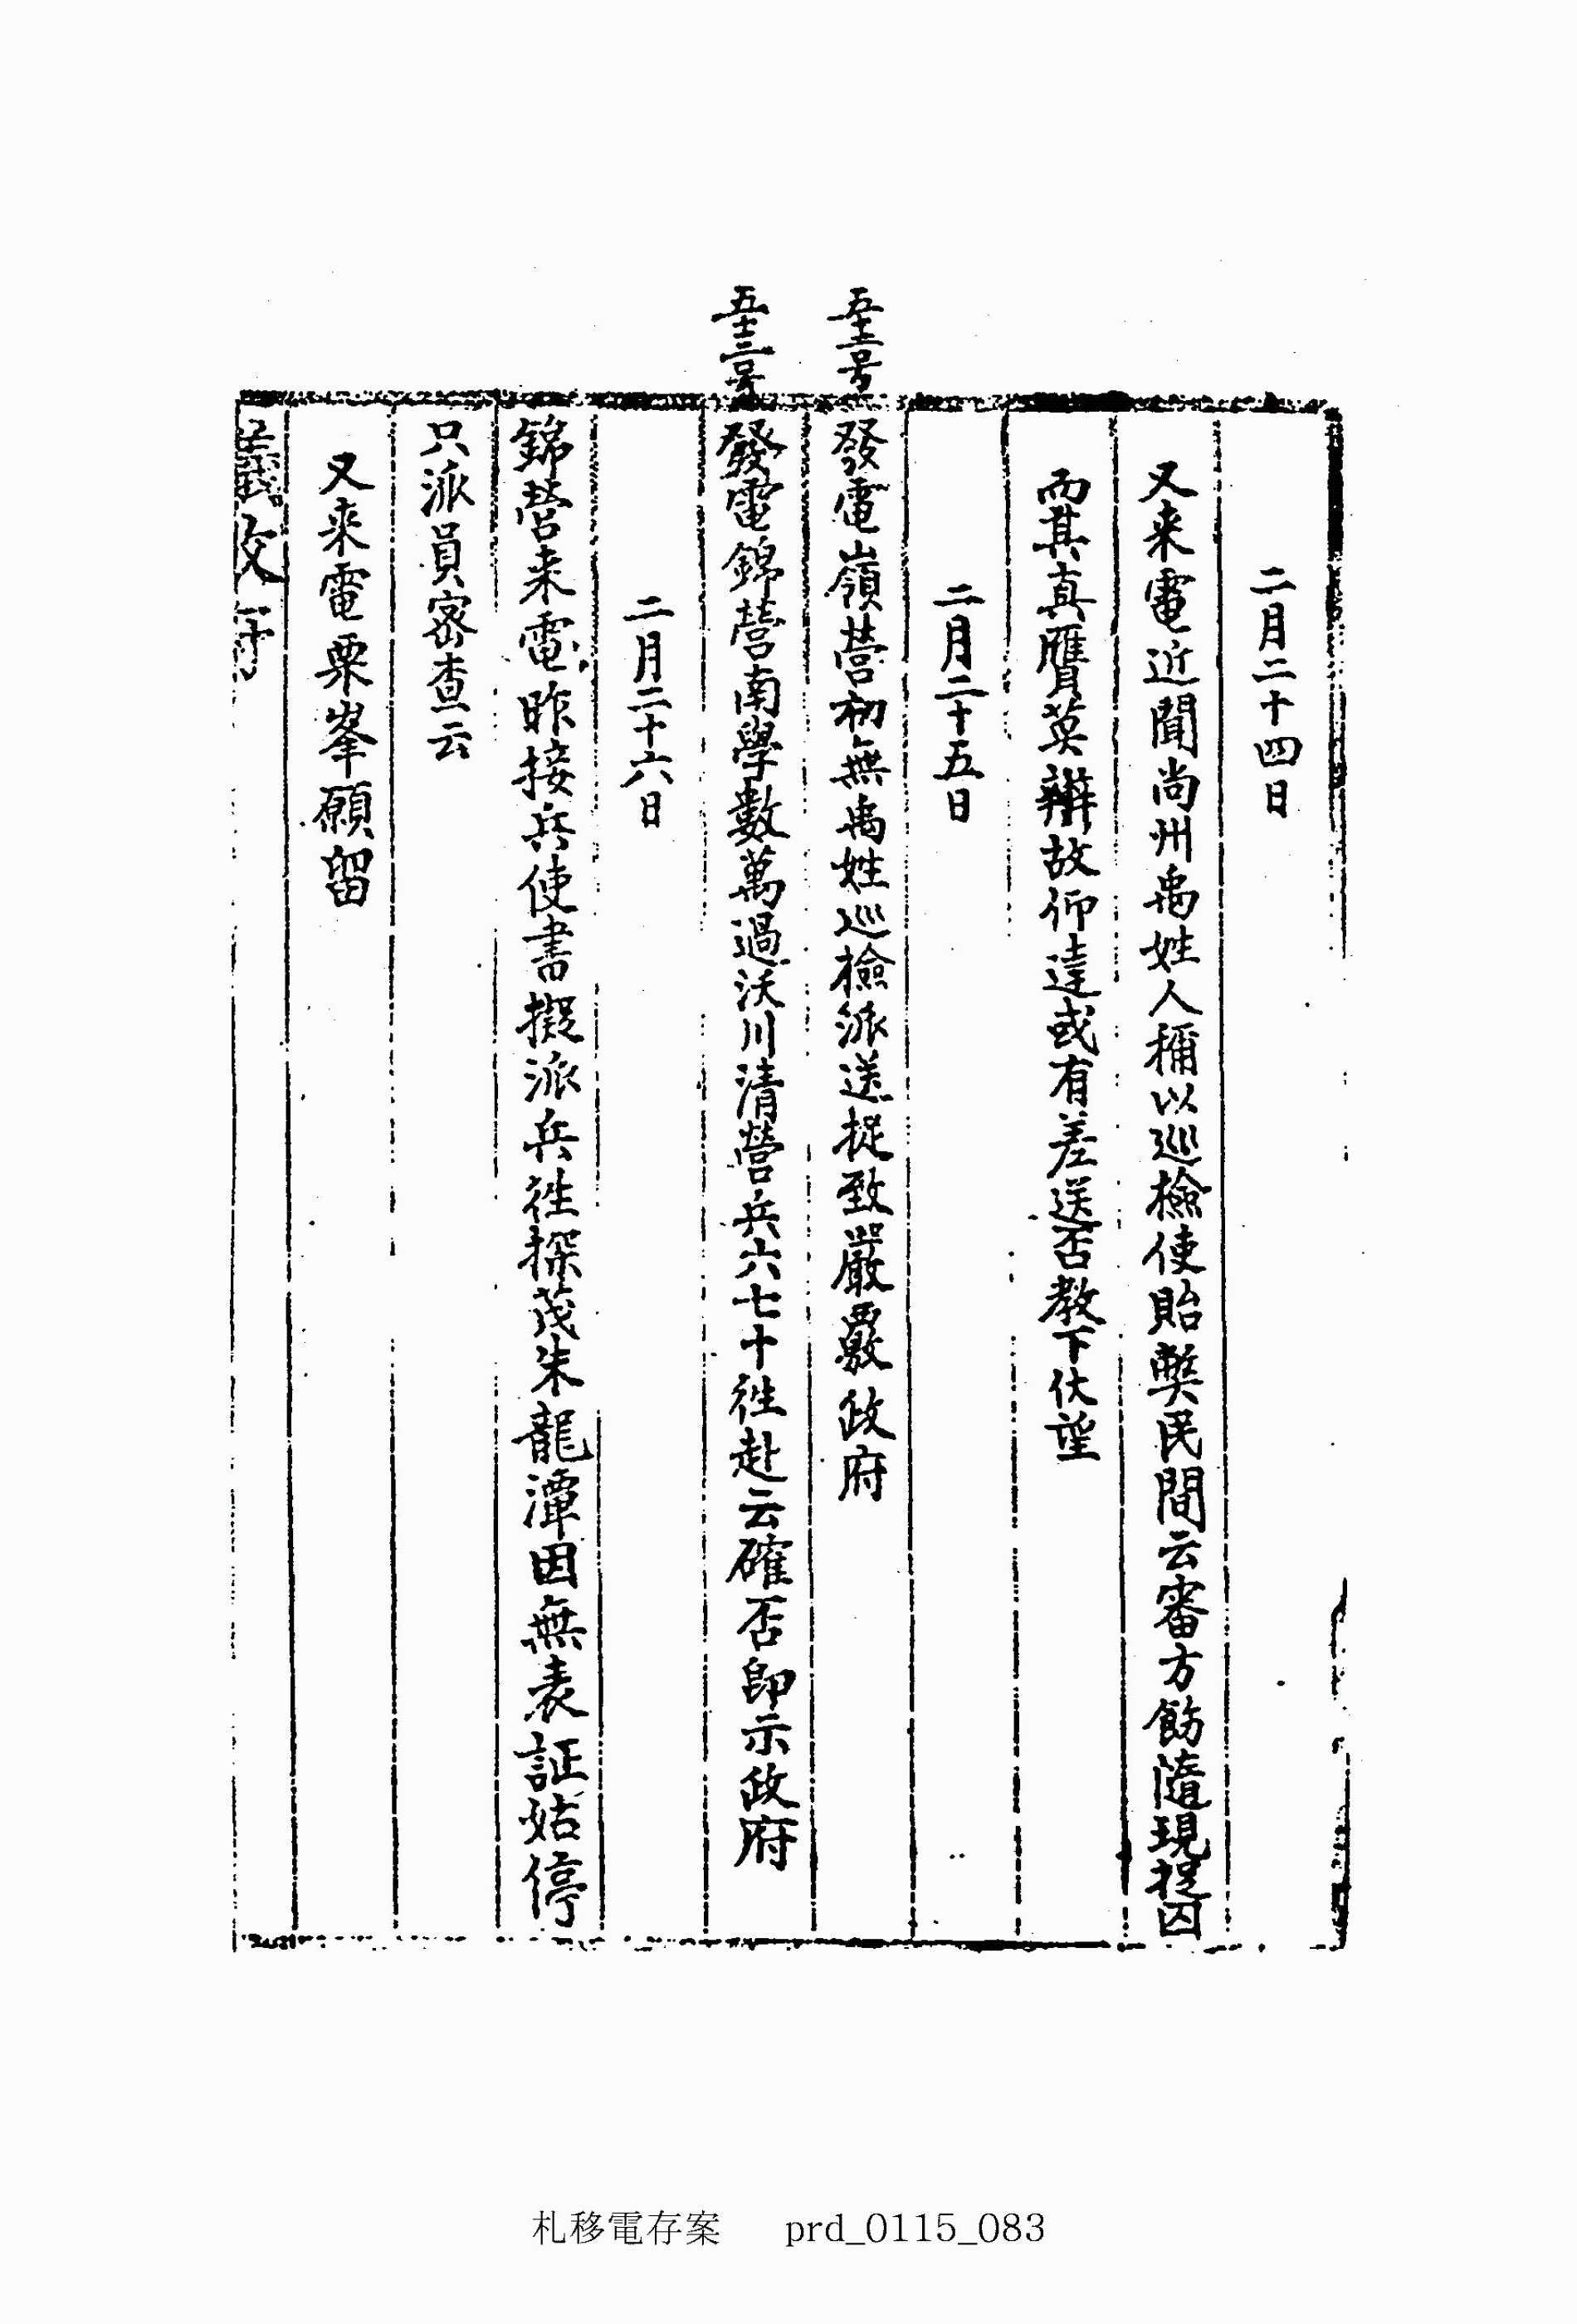 二月二十四日
又来電近聞尚州禹姓人稱以巡檢使貽弊民間云審方飭隨現捉囚
而其真贋莫辨故仰達或有差送否教下伏望
二月二十五日
五十二号
發電嶺營初無禹姓巡檢派送捉致嚴覈政府
五十三号
發電錦營南學數萬過沃川清營兵六七十徃赴云確否即示政府
二月二十六日
錦營来電昨接兵使書擬派兵徃探茂朱龍潭因無表証姑停
只派員密查云
又来電栗峯願留
議政府
札移電存案 prd_0115_083